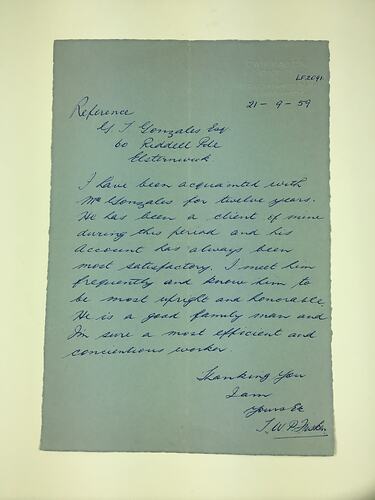 LF2091
21 - 9 - 59
Reference
G T Gonzales Esq
60 Riddell Pde
Elsternwick
I have been acquainted with
Mr Gonzales for twelve years.
He has been a client of mine
during this period and his
account has always been
most satisfactory. I meet him
frequently and know him to
be most upright and honorable
He is a good family man and
I'm sure a most efficient and
concientious worker.
Thanking You
I am
Yours Etc
T. W. P.